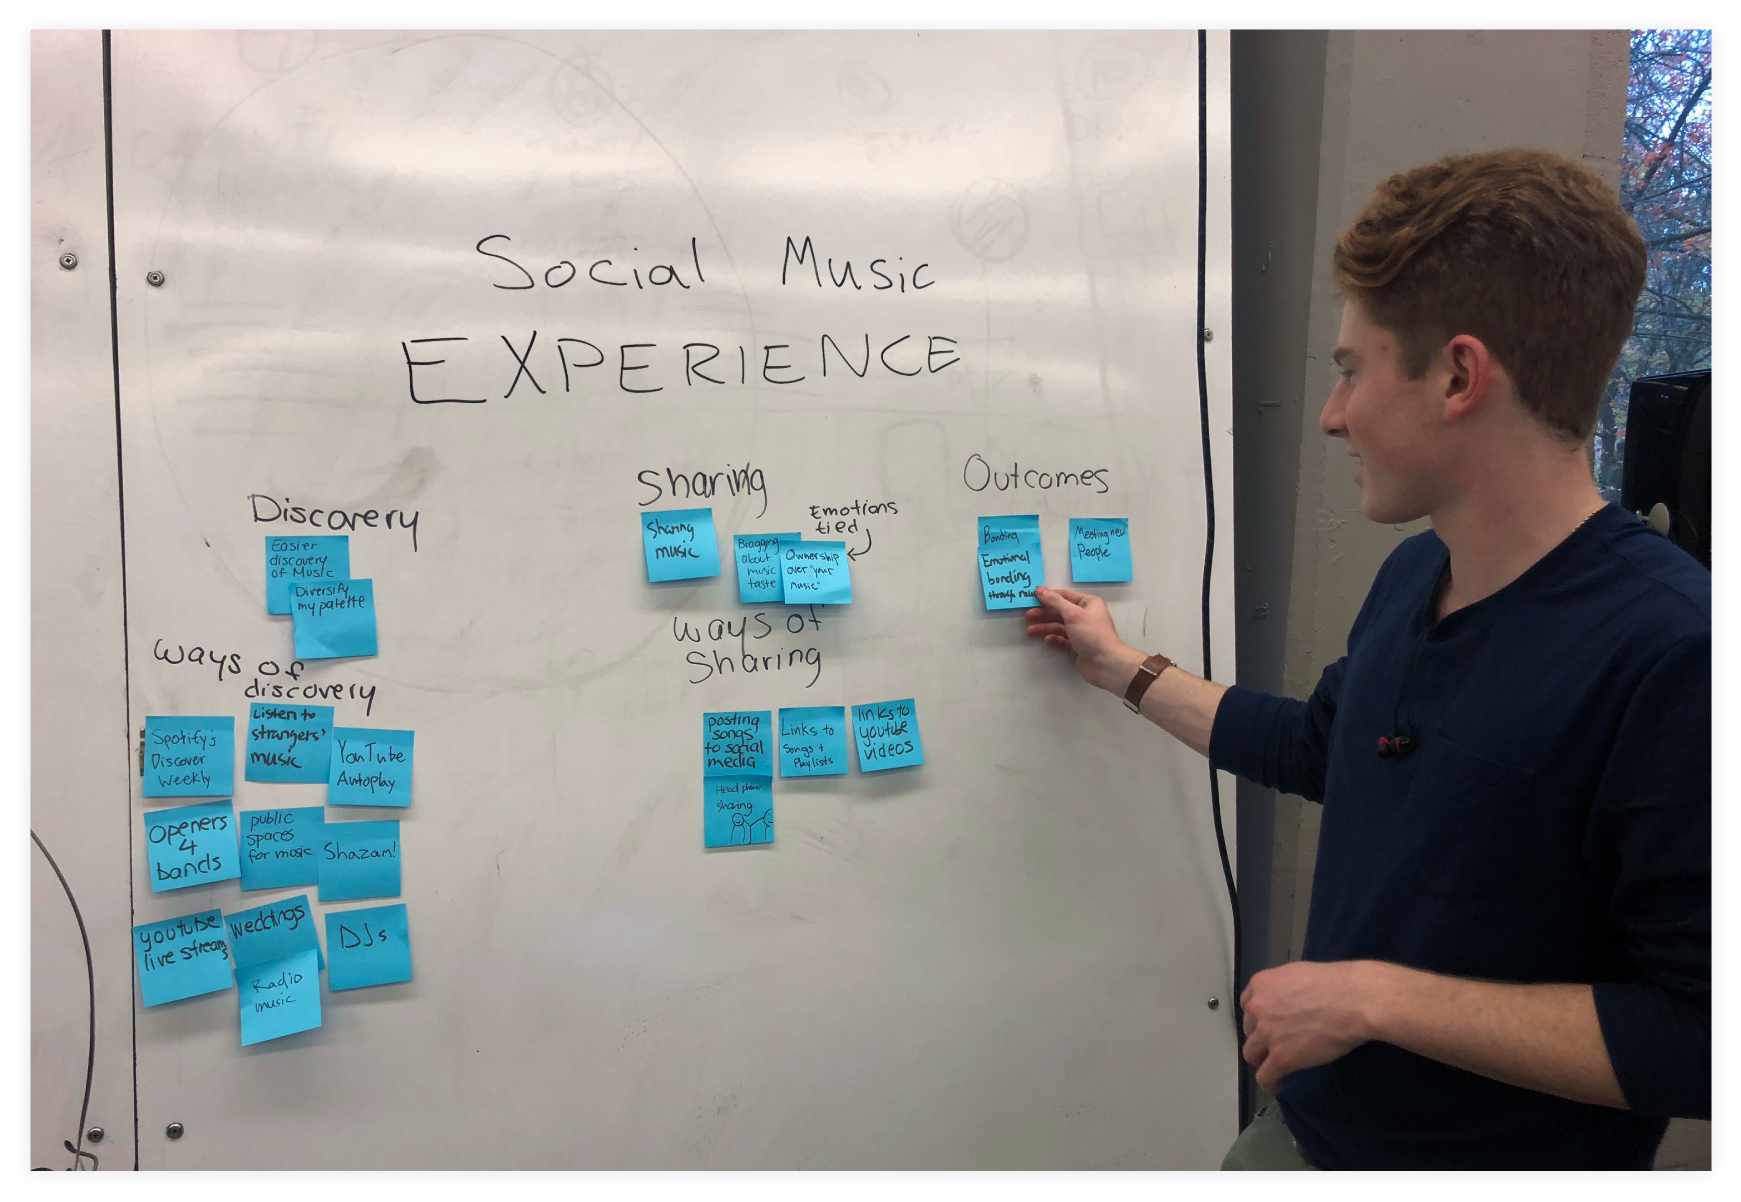 Social Music
EXPERIENCE
Discovery
Easier
discovery
of Music
Diversify
my palette
Ways of
discovery
Spotify's
Discover
Weekly
Listen to
strangers'
music
YouTube
Autoplay
Openers
4
bands
public
spaces
for music
Shazam!
youtube
live streams
Weddings
DJs
Radio
music
Sharing
Sharing
music
Bragging
about
music
taste
Emotions
tied
Ownership
over "your
music"
Ways of
Sharing
posting
songs
to social
media
Links to
Songs +
Playlists
links to
youtube
videos
Head phone
sharing
Outcomes
Bonding
Emotional
bonding
through
Meeting new
People